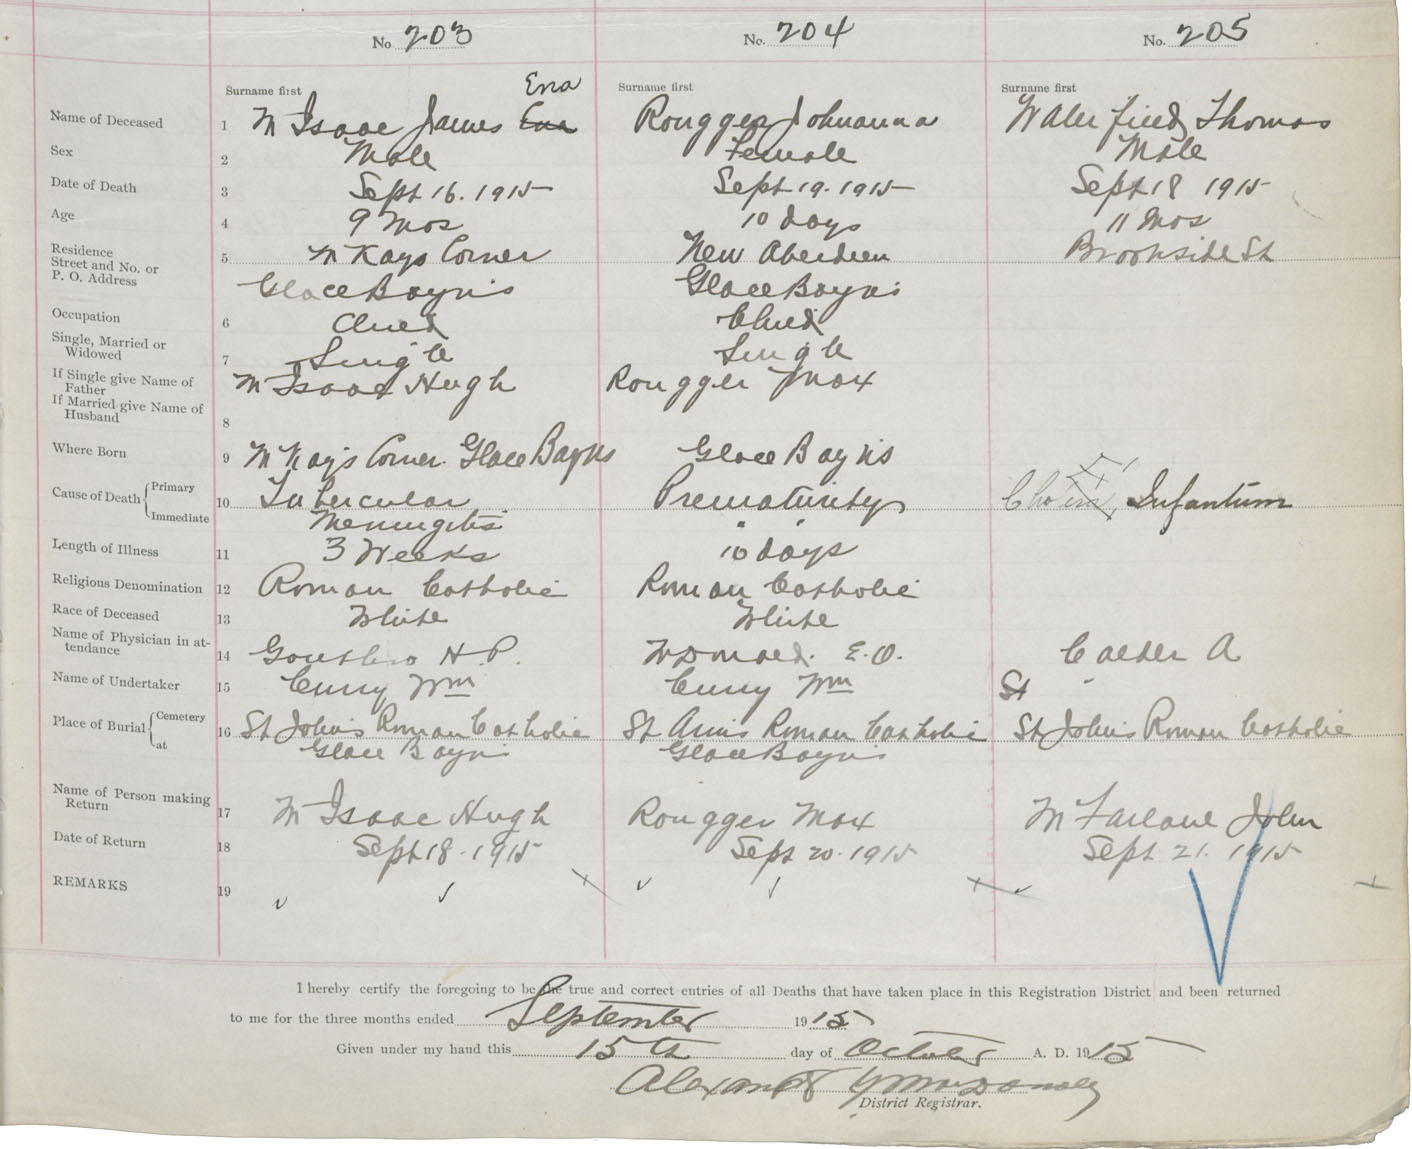 No 203 No. 204 No. 205
Surname first Surname first Surname first
Ena
Name of Deceased 1 Mc Isaac James Ena Rougger Johnanna Waterfield Thomas
Sex 2 Male Female Male
Date of Death 3 Sept 16. 1915 Sept 19. 1915 Sept 18 1915
Age 4 9 Mos 10 days 11 Mos
Residence
Street and No. or
P. O. Address 5 Mc Kays Corner New Aberdeen Brookside St
Glace Bay NS Glace Bay NS
Occupation 6 Child Child
Single, Married or
Widowed 7 Single Single
If Single give Name of
Father Mc Isaac Hugh Rougger Max
If Married give Name of
Husband 8
Where Born 9 Mc Kay's Corner. Glace Bay NS Glace Bay NS
Cause of Death Primary 10 Tubercular Prematurity Cholera Infantum
Immediate Meningitis " "
Length of Illness 11 3 Weeks 10 days
Religious Denomination 12 Roman Catholic Roman Catholic
Race of Deceased 13 White White
Name of Physician in at-
tendance 14 H. P. E. O. Calder A
Name of Undertaker 15 Curry Wm Curry Wm St "
Place of Burial Cemetery 16 St John's Roman Catholic St Ann's Roman Catholic St John's Roman Catholic
at Glace Bay NS Glace Bay NS
Name of Person making
Return 17 Mc Isaac Hugh Rougger Max Mc Farlane John
Date of Return 18 Sept 18. 1915 Sept 20. 1915 Sept 21. 1915
REMARKS 19
I hereby certify the foregoing to be the true and correct entries of all Deaths that have taken place in this Registration District and been returned
to me for the three months ended September 1915
Given under my hand this 15th day of October A. D. 1915
Alexander
District Registrar.